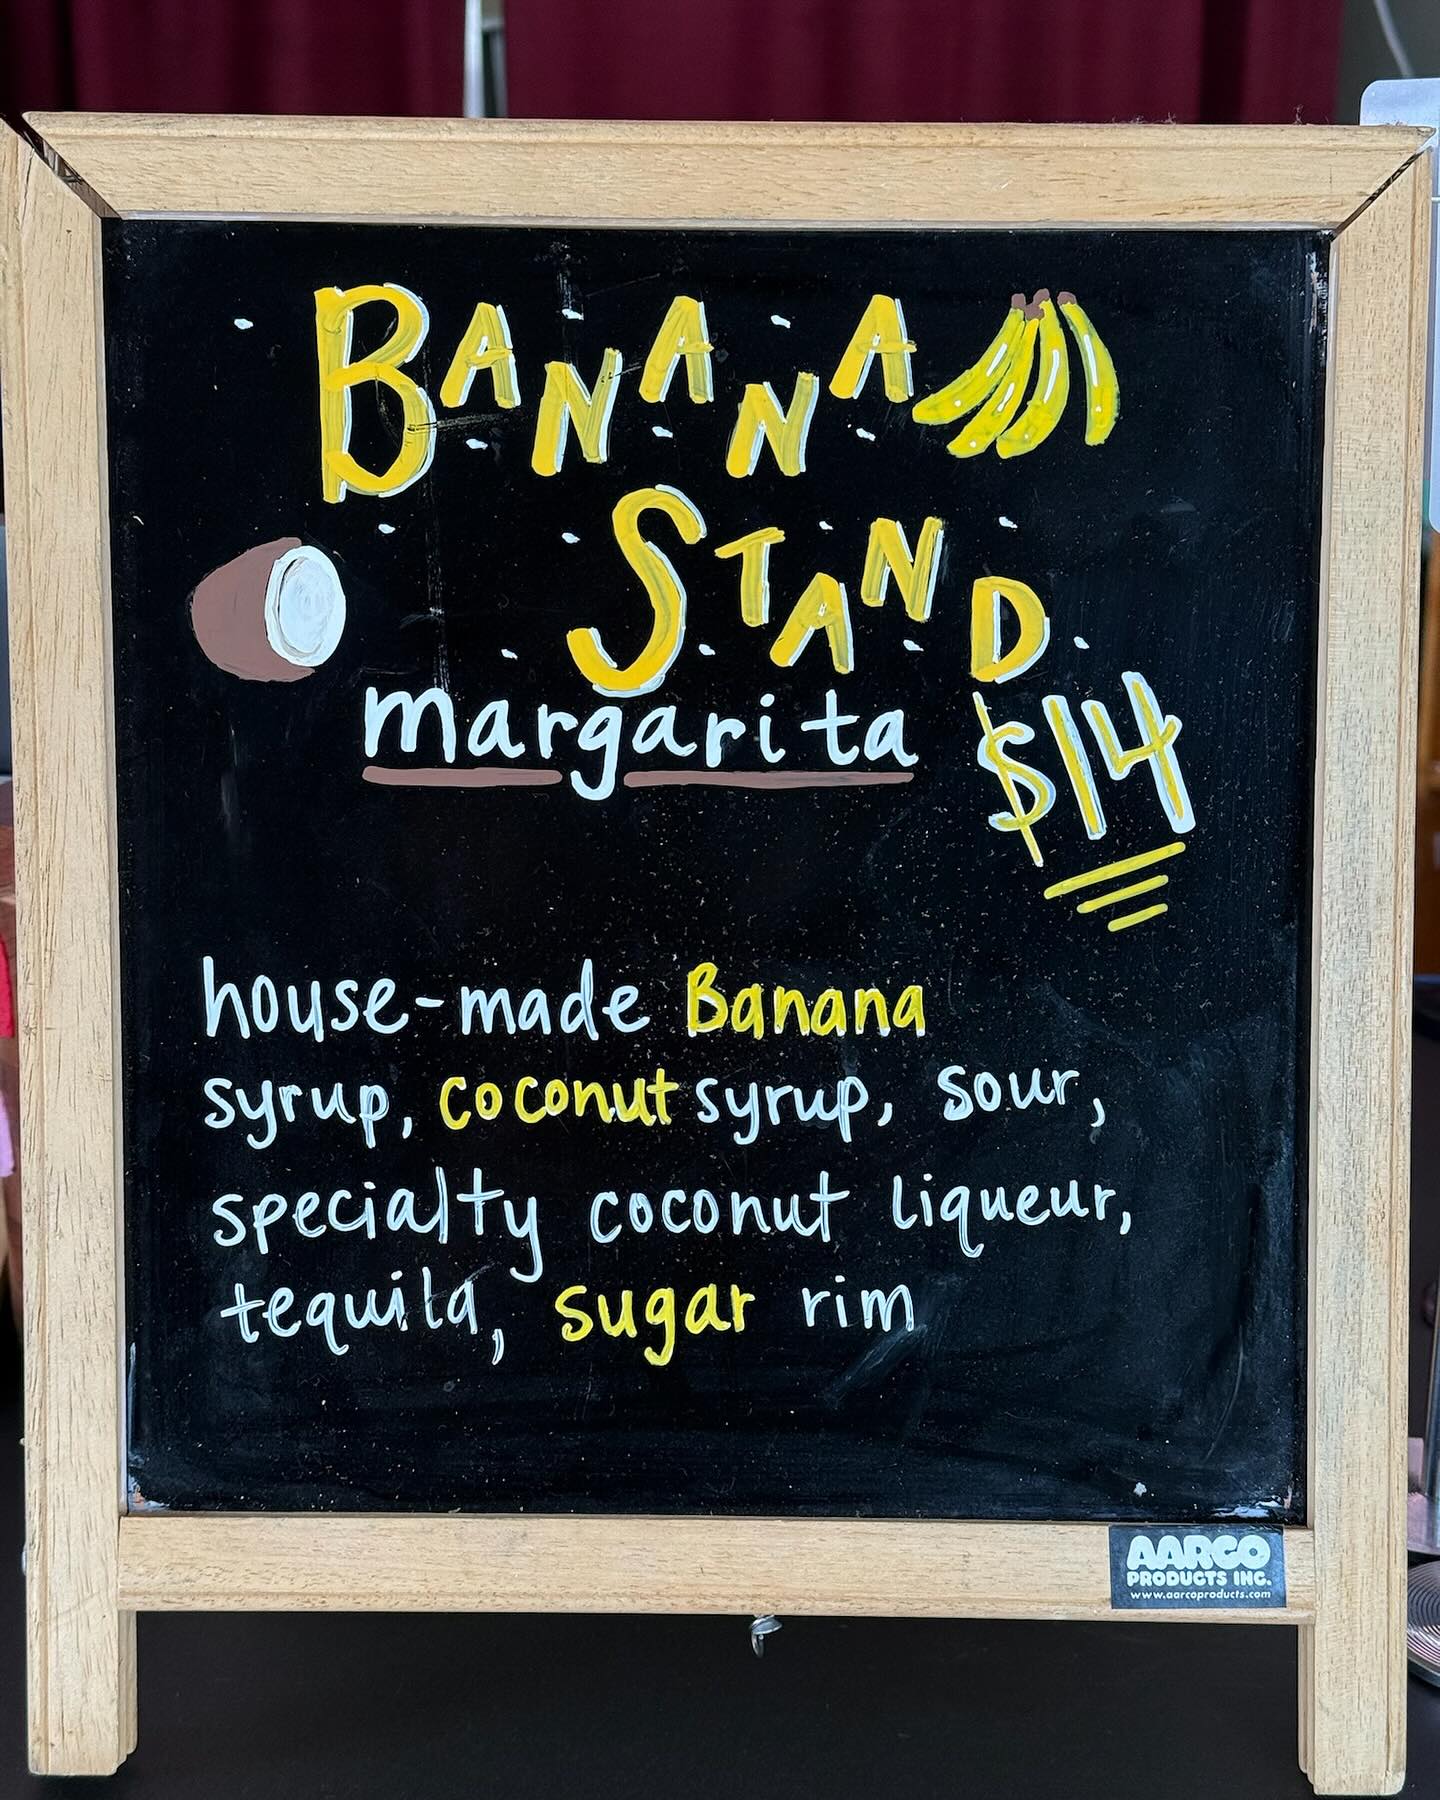 BANANA
STAND
margarita $14
house-made Banana
syrup, coconut syrup, sour,
specialty coconut liqueur,
tequila, sugar rim
AARCO
PRODUCTS INC.
www.aarcoproducts.com